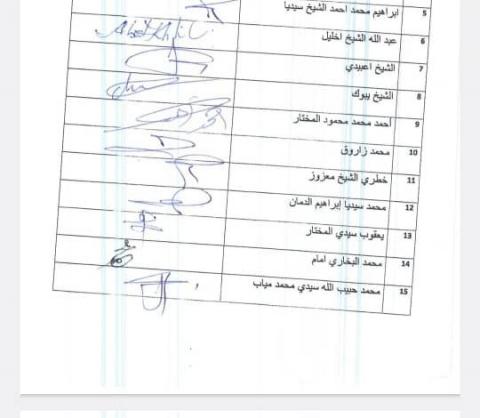 5 ابراهيم محمد احمد الشيخ سيديا
6 عبد الله الشيخ اخليل
7 الشيخ اعبيدي
8 الشيخ ببوك
9 أحمد محمد محمود المختار
10 محمد زاروق
11 خطري الشيخ معزوز
12 محمد سيديا إبراهيم الدمان
13 يعقوب سيدي المختار
14 محمد البخاري امام
15 محمد حبيب الله سيدي محمد مياب